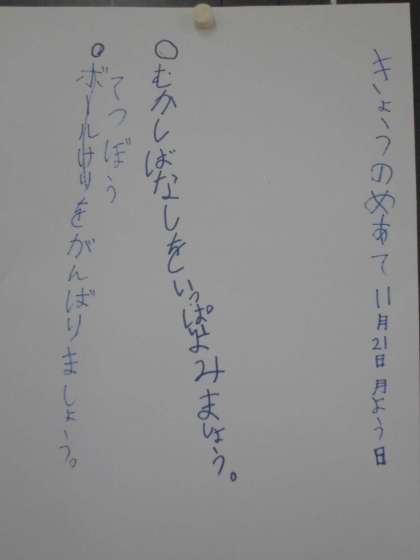 きょうのめあて 11月21日月よう日
○むかしばなしをいっぱいよみましょう。
てつぼう
●ボールけりをがんばりましょう。